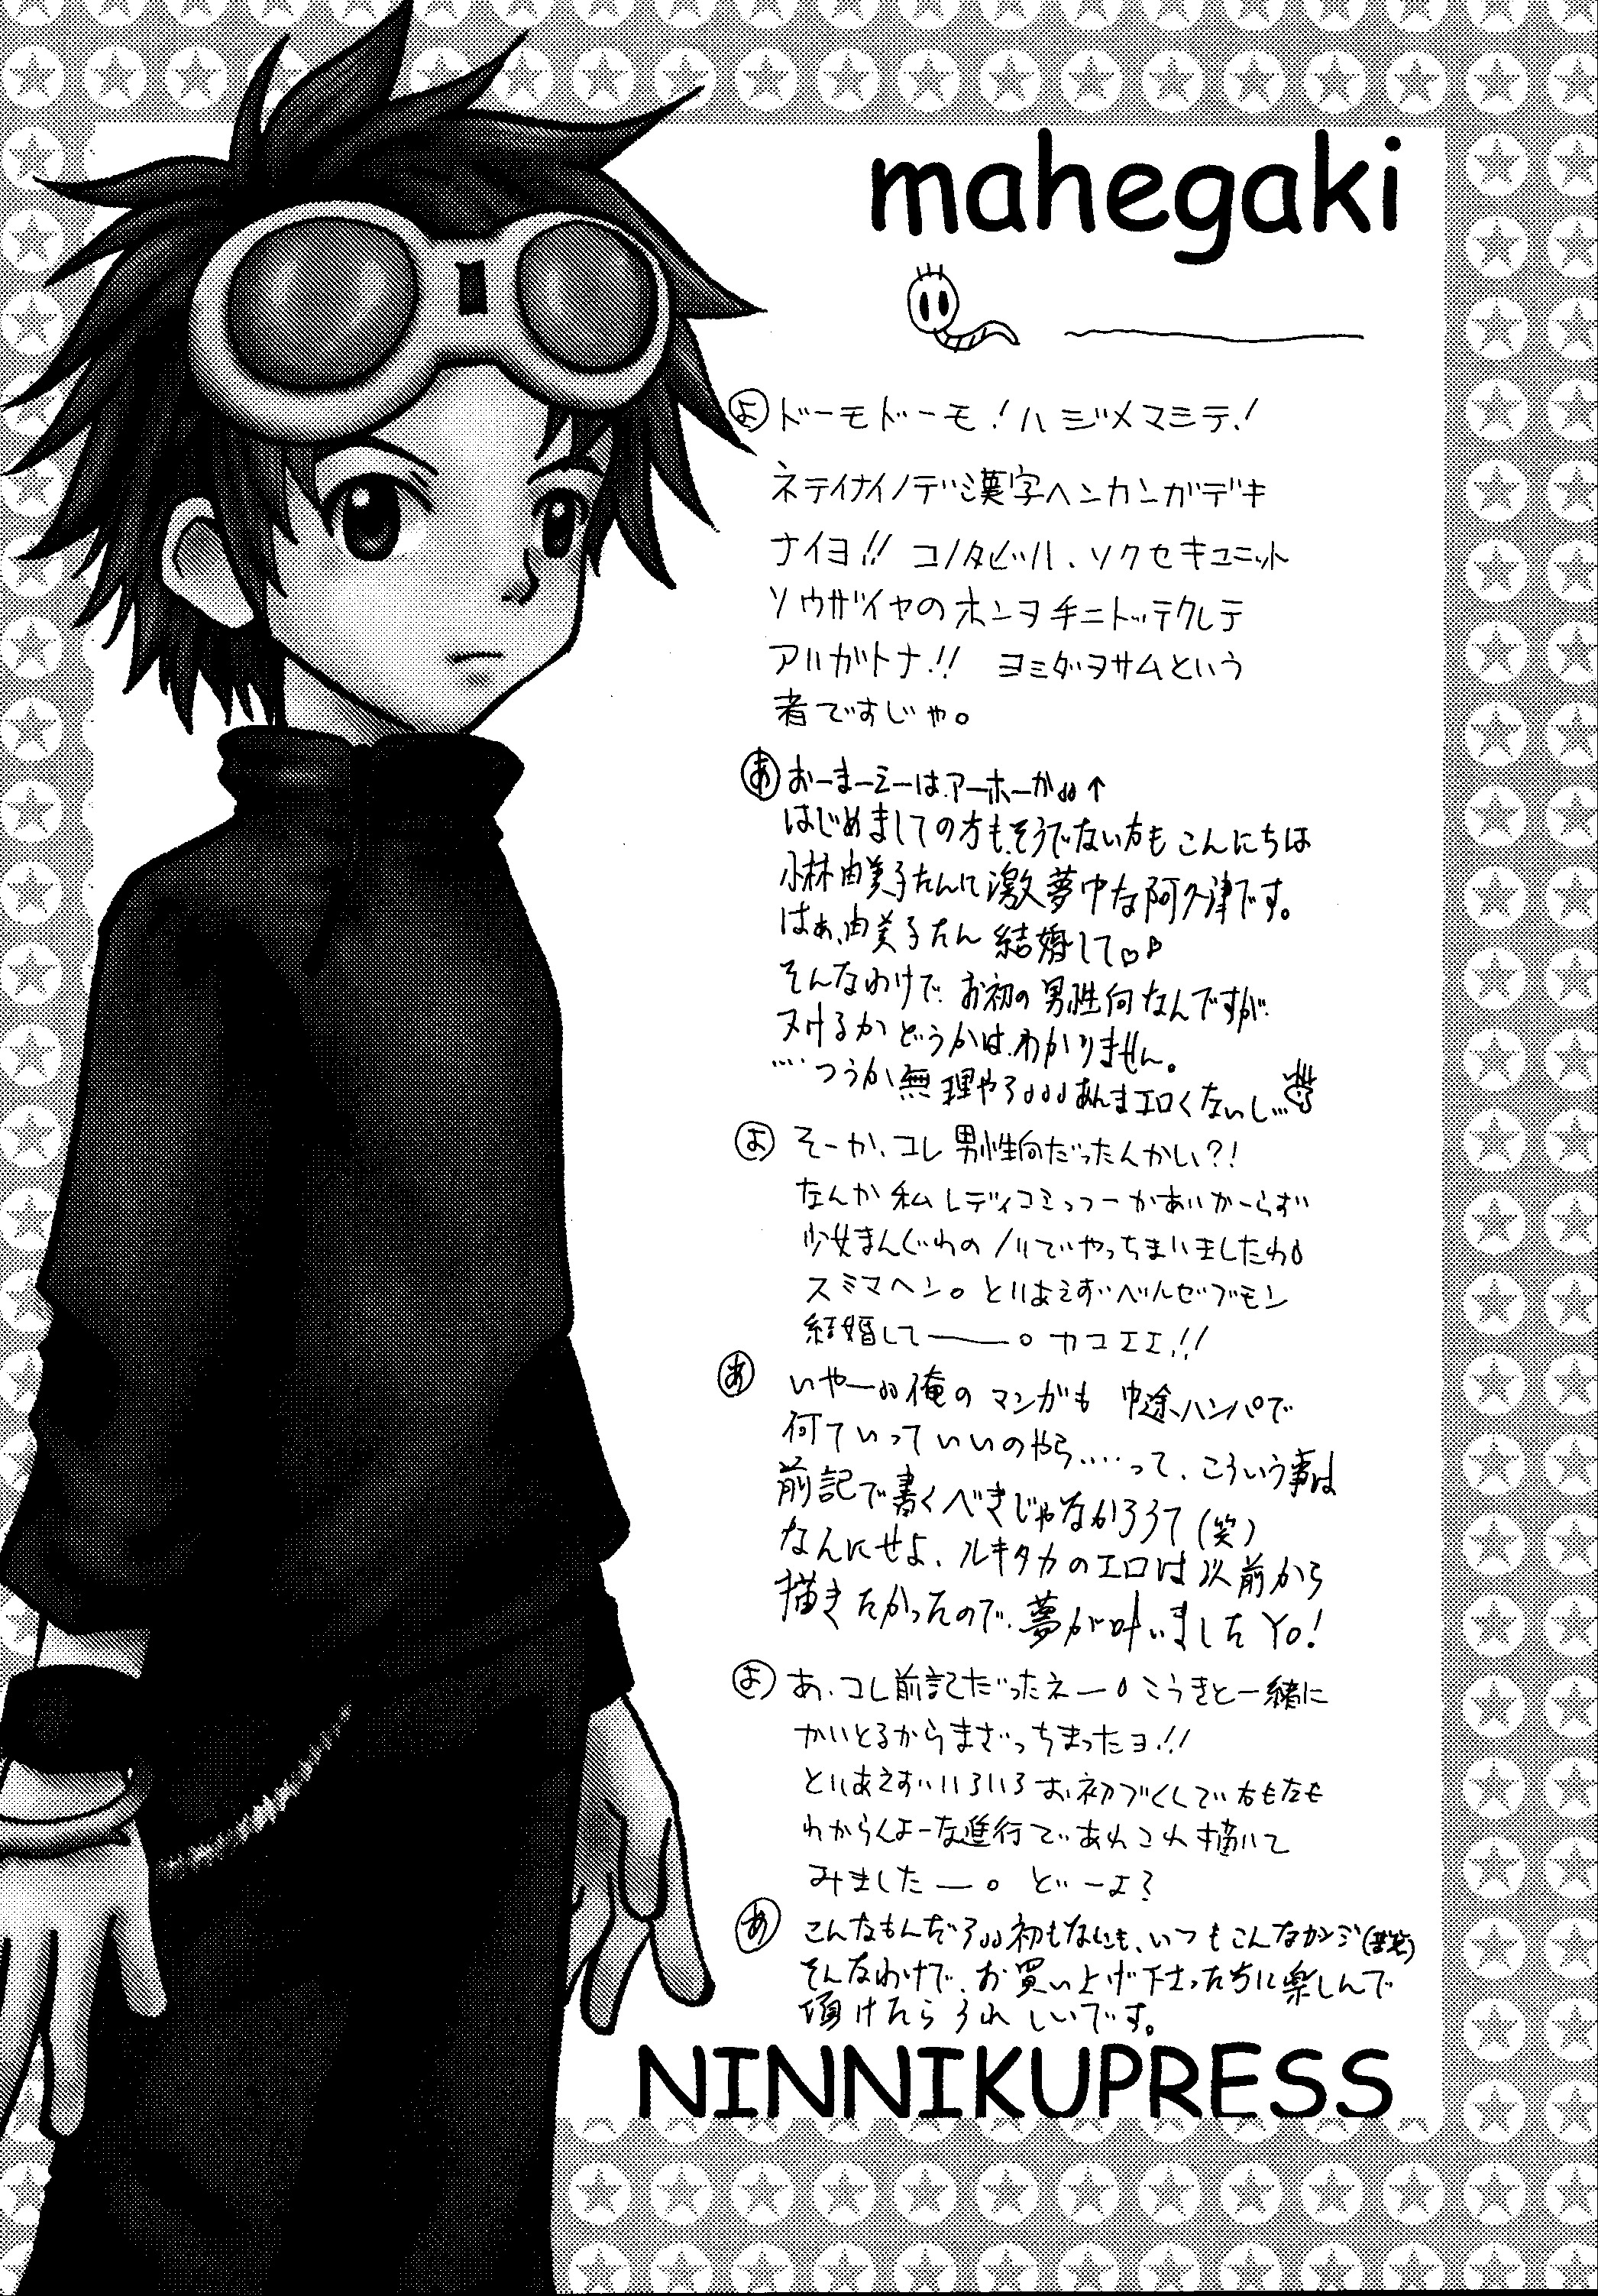 mahegaki
よ ドーモドーモ!ハジメマシテ!
ネテイナイノデ漢字ヘンカンガデキ
ナイヨ!! コノタビハ、ソクセキユニット
ソウザイヤのホンヲ手ニトッテクレテ
アリガトナ!! ヨミダヲサムという
者ですじゃ。
あ おーまーえーは、アーホーか↑
はじめましての方も、そうでない方も こんにちは
小林由美子たんに激夢中な阿久津です。
はぁ、由美子たん 結婚して♡♪
そんなわけで、お初の男性向なんですが、
ヌけるかどうかは、わかりません。
…つうか無理やろあんまエロくないし…
よ そーか、コレ 男性向だったんかい?!
なんか私レディコミっつーかあいかーらず
少女まんぐわのノリでやっちまいましたわ
スミマヘン。とりあえずベルゼブモン
結婚して――。カコエエ!!
あ いやー俺のマンガも 中途ハンパで
何ていっていいのやら‥‥って、こういう事は
前記で書くべきじゃなかろうて(笑)
なんにせよ、ルキタカのエロは以前から
描きたかったので、夢が叶いましたYo!
よ あ、コレ前記だったネーこうきと一緒に
かいとるからまざっちまったヨ!!
とりあえずいろいろお初づくしで右も左も
わからんよーな進行であれこれ描いて
みましたー。どーよ?
あ こんなもんだろ初もなにも、いつもこんなカンジ(苦笑)
そんなわけで、お買い上げ下さった方に楽しんで
頂けたらうれしいです。
NINNIKUPRESS